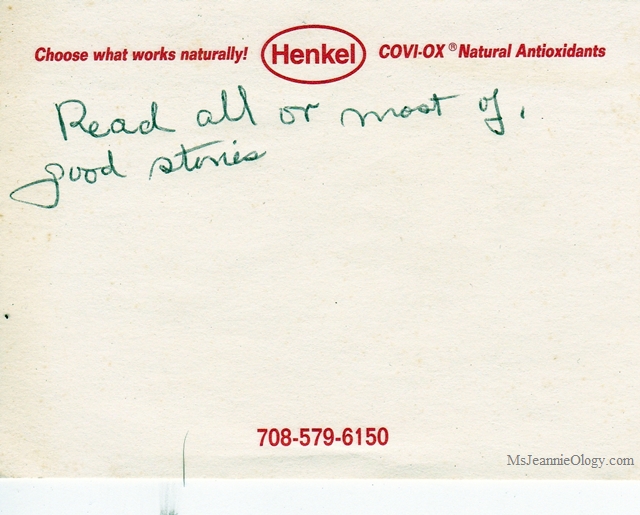 Choose what works naturally! Henkel COVI-OX® Natural Antioxidants
Read all or most of,
good stories
708-579-6150
MsJeannieOlogy.com